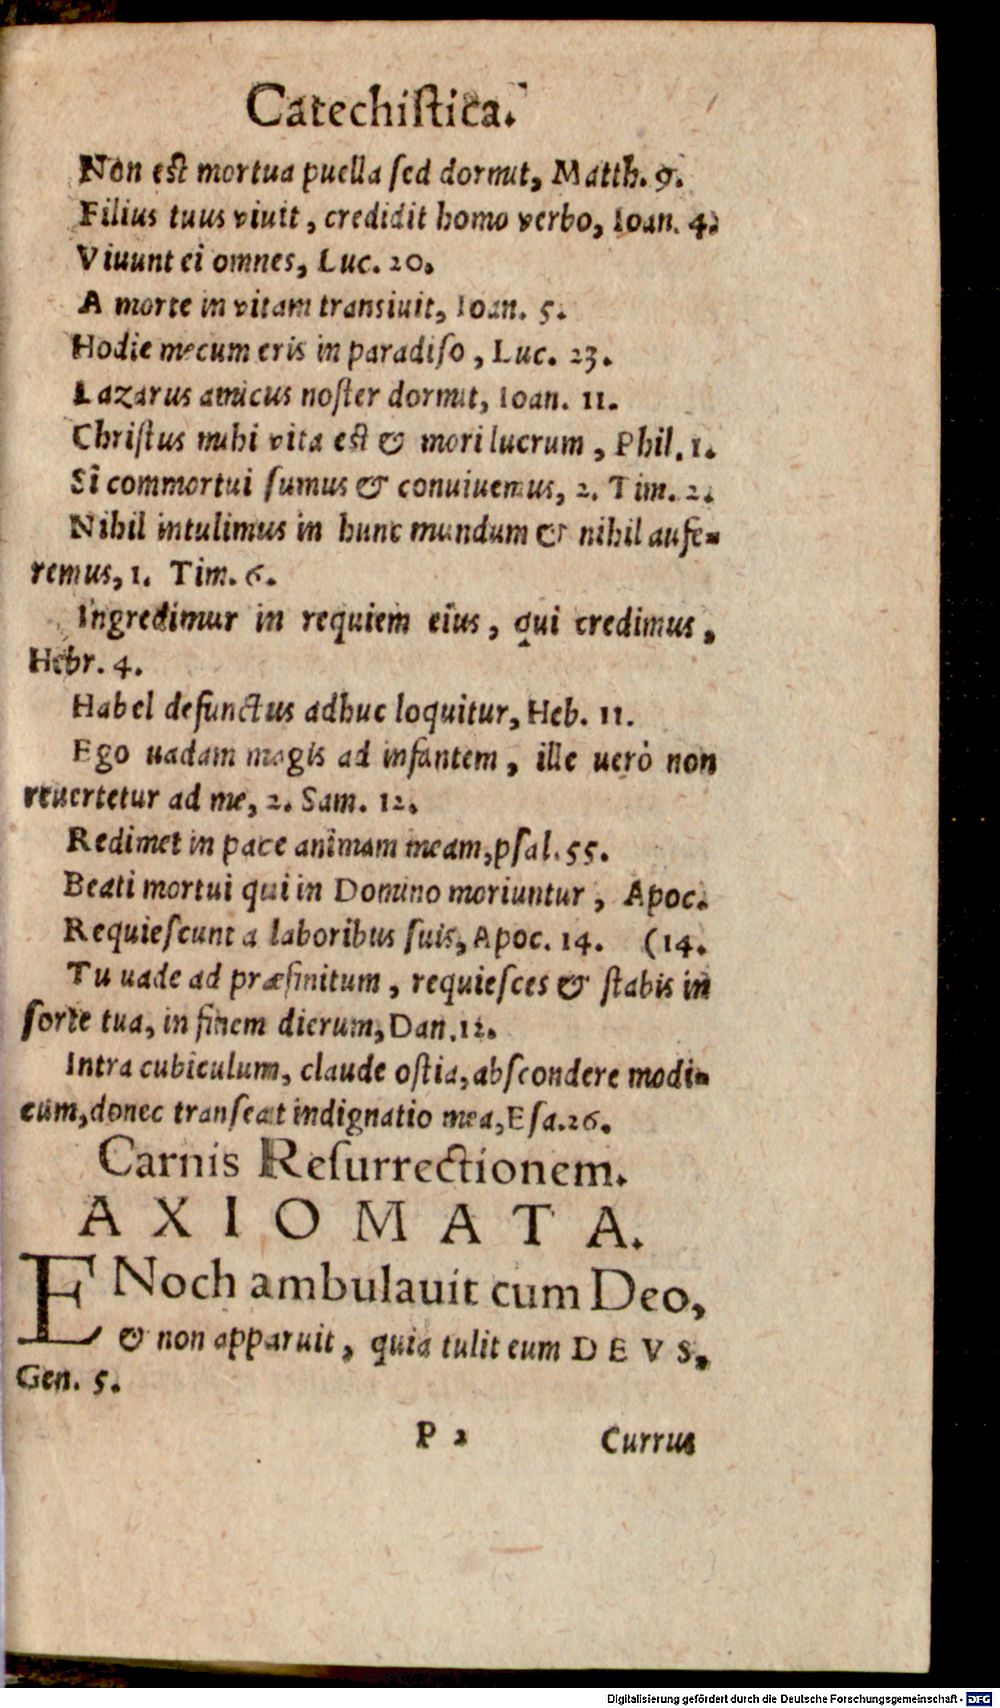 Catechiſtica.
Non est mortua puella ſed dormit, Matth. 9.
Filius tuus viuit, credidit homo verbo, Ioan. 4.
Viuunt ei omnes, Luc. 20.
A morte in vitam transiuit, Ioan. 5.
Hodie mecum eris in paradiſo, Luc. 23.
Lazarus amicus noſter dormit, Ioan. 11.
Chriſtus mihi vita est & mori lucrum, Phil. 1.
Si commortui ſumus & conuiuemus, 2. Tim. 2.
Nihil intulimus in hunc mundum & nihil aufe-
remus, 1. Tim. 6.
Ingredimur in requiem eius, qui credimus,
Hebr. 4.
Habel defunctus adhuc loquitur, Heb. 11.
Ego uadam magis ad infantem, ille uerò non
reuertetur ad me, 2. Sam. 12.
Redimet in pace animam meam, pſal. 55.
Beati mortui qui in Domino moriuntur, Apoc.
Requieſcunt a laboribus ſuis, Apoc. 14. (14.
Tu uade ad præfinitum, requieſces & ſtabis in
ſorte tua, in finem dierum, Dan. 12.
Intra cubiculum, claude oſtia, abſcondere modi-
cum, donec tranſeat indignatio mea, Eſa. 26.
Carnis Reſurrectionem.
AXIOMATA.
ENoch ambulauit cum Deo,
& non apparuit, quia tulit eum DEVS,
Gen. 5.
P 2 Currus
Digitalisierung gefördert durch die Deutsche Forschungsgemeinschaft - DFG